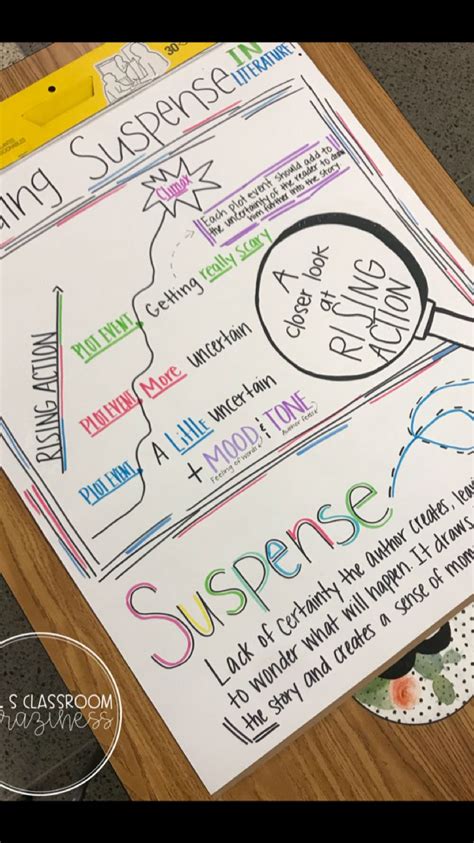 30
Suspense IN
LITERATURE!
Climax
Each plot event should add to
the uncertainty of the reader to draw
him further into the story
PLOT EVENT Getting really scary
A
closer look
at
RISING
ACTION
RISING ACTION
PLOT EVENT More uncertain
PLOT EVENT A little uncertain
+ MOOD & TONE
Feeling of words
Suspense
Lack of certainty the author creates,
to wonder what will happen. It draws
the story and creates a sense of
S CLASSROOM